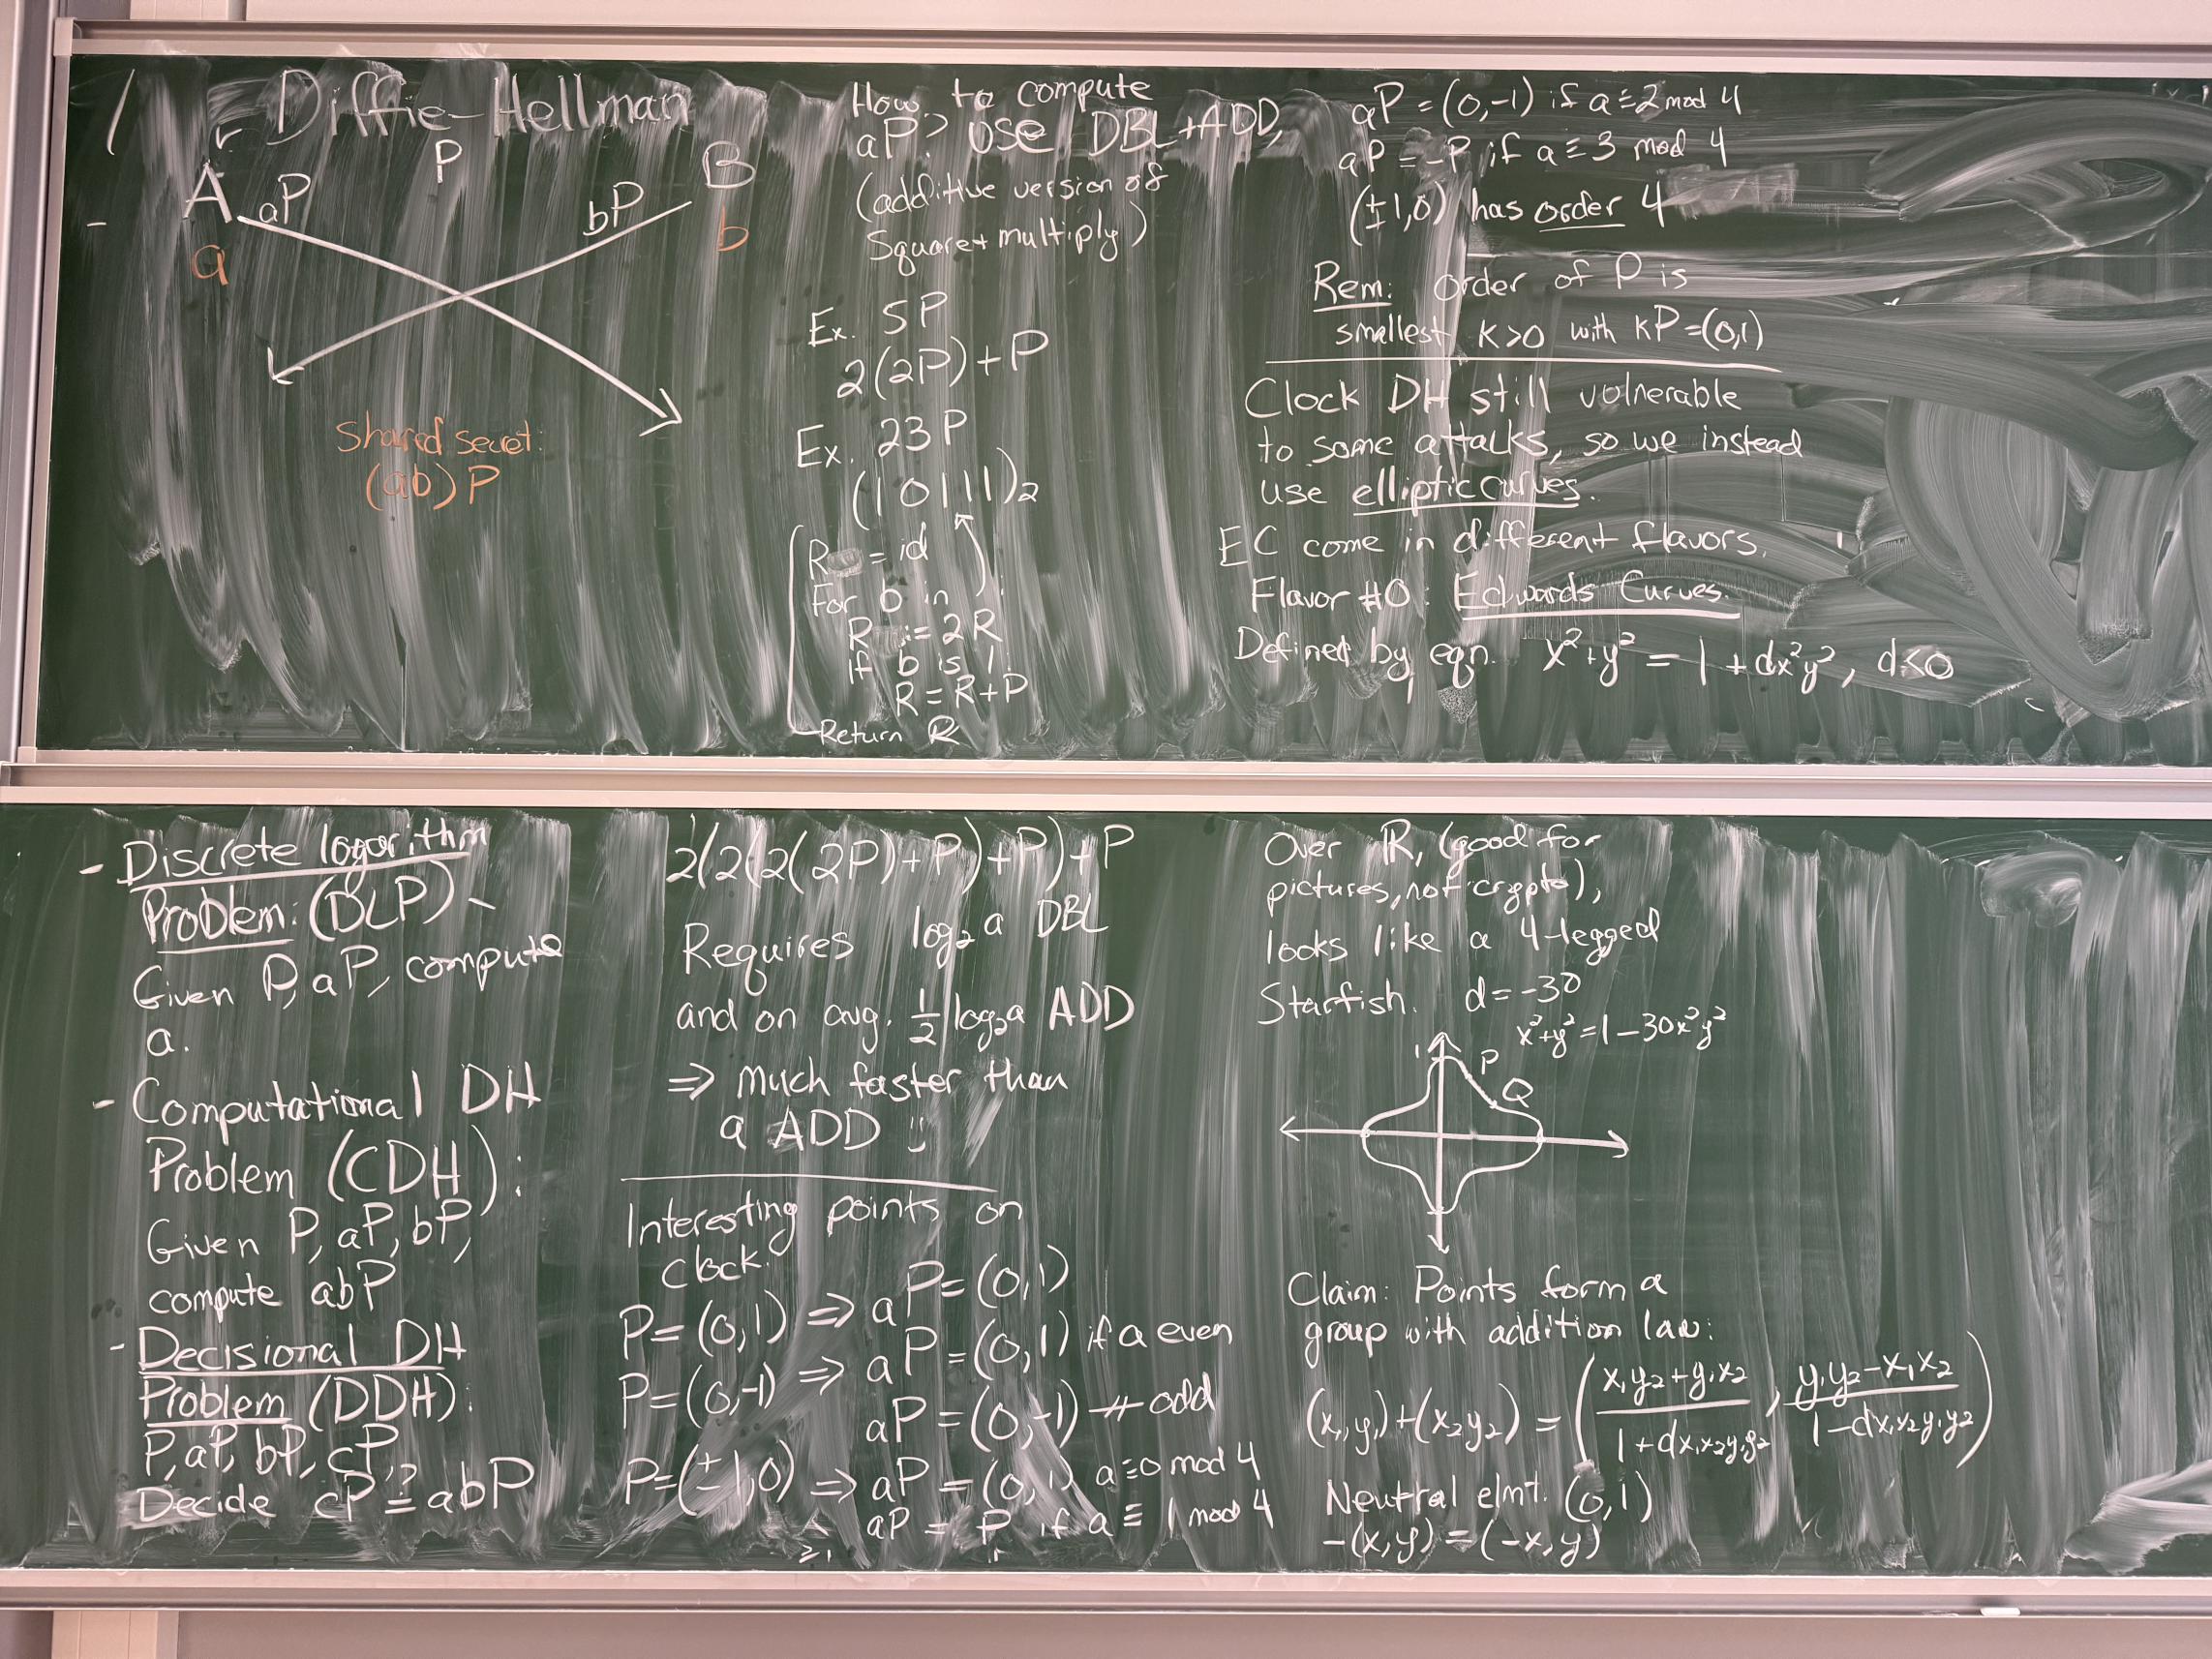 Diffie-Hellman
A
P
B
aP
bP
a
b
Shared secret:
(ab)P
- Discrete logarithm
Problem: (DLP) -
Given P, aP, compute
a.
- Computational DH
Problem (CDH):
Given P, aP, bP,
compute abP
- Decisional DH
Problem (DDH):
P, aP, bP, cP,
Decide cP ≟ abP
How to compute
aP? use DBL+ADD,
(additive version of
Square+multiply)
Ex. 5P
2(2P)+P
Ex. 23P
(10111)₂
R = id
For b in
R := 2R
If b is 1:
R = R+P
Return R
2(2(2(2P)+P)+P)+P
Requires log₂a DBL
and on avg. 1/2 log₂a ADD
⇒ much faster than
a ADD
Interesting points on
clock:
P=(0,1) ⇒ aP=(0,1)
P=(0,-1) ⇒ aP=(0,1) if a even
aP=(0,-1) odd
P=(±1,0) ⇒ aP=(0,1) a≡0 mod 4
aP = P if a ≡ 1 mod 4
aP = (0,-1) if a≡2 mod 4
aP = -P if a≡3 mod 4
(±1,0) has order 4
Rem: order of P is
smallest k>0 with kP=(0,1)
Clock DH still vulnerable
to some attacks, so we instead
use elliptic curves.
EC come in different flavors.
Flavor #0: Edwards Curves.
Defined by eqn. x²+y² = 1+dx²y², d<0
Over ℝ, (good for
pictures, not crypto),
looks like a 4-legged
Starfish. d=-30
x²+y²=1-30x²y²
1
P
Q
Claim: Points form a
group with addition law:
(x₁,y₁)+(x₂y₂) = ((x₁y₂+y₁x₂)/(1+dx₁x₂y₁y₂), (y₁y₂-x₁x₂)/(1-dx₁x₂y₁y₂))
Neutral elmt. (0,1)
-(x,y)=(-x,y)